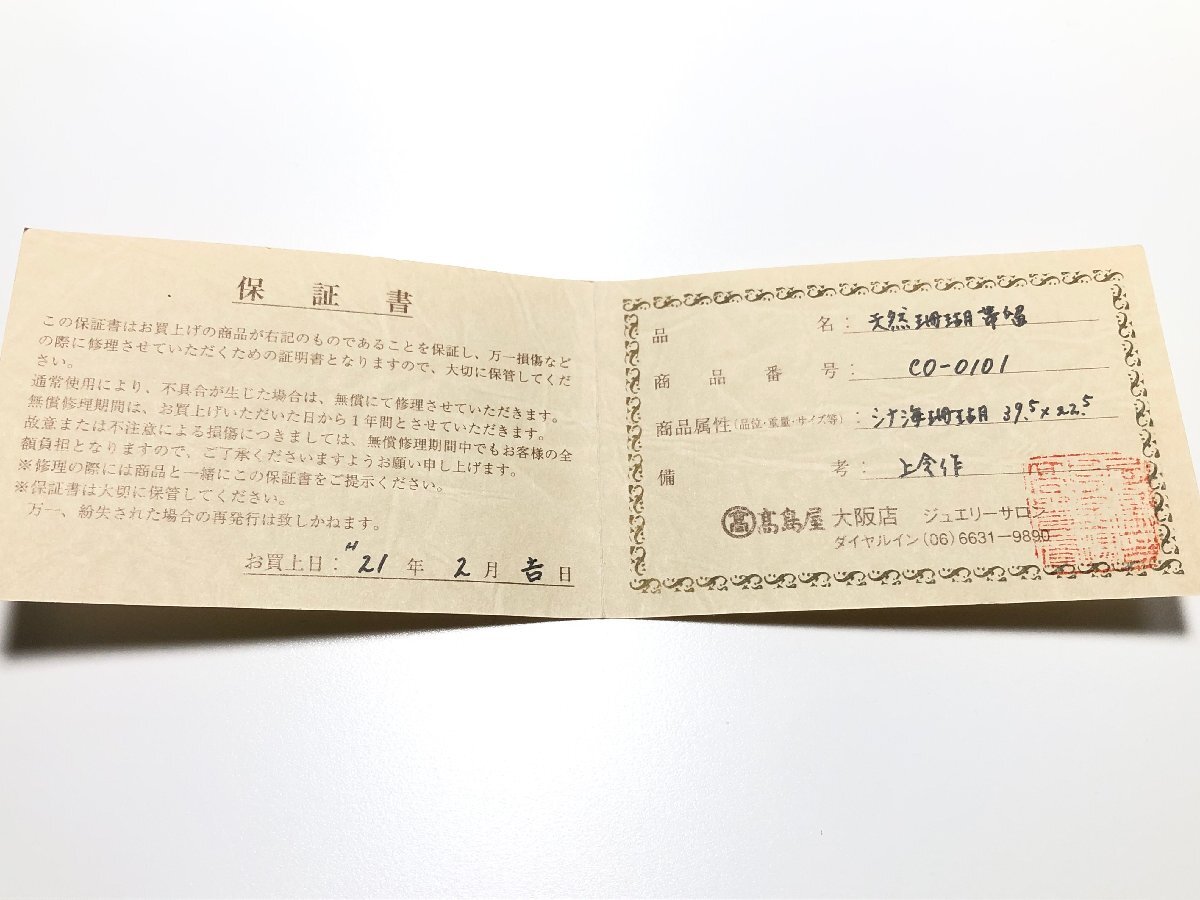 保証書
この保証書はお買上げの商品が右記のものであることを保証し、万一損傷など
の際に修理させていただくための証明書となりますので、大切に保管してくだ
さい。
通常使用により、不具合が生じた場合は、無償にて修理させていただきます。
無償修理期間は、お買上げいただいた日から1年間とさせていただきます。
故意または不注意による損傷につきましては、無償修理期間中でもお客様の全
額負担となりますので、ご了承くださいますようお願い申し上げます。
※修理の際には商品と一緒にこの保証書をご提示ください。
※保証書は大切に保管してください。
万一、紛失された場合の再発行は致しかねます。
お買上日：H21年2月吉日
品名：天然珊瑚帯留
商品番号：CO-0101
商品属性(品位・重量・サイズ等)：シナ海珊瑚 39.5×22.5
備考：上今作
髙 髙島屋 大阪店 ジュエリーサロン
ダイヤルイン(06)6631-9890